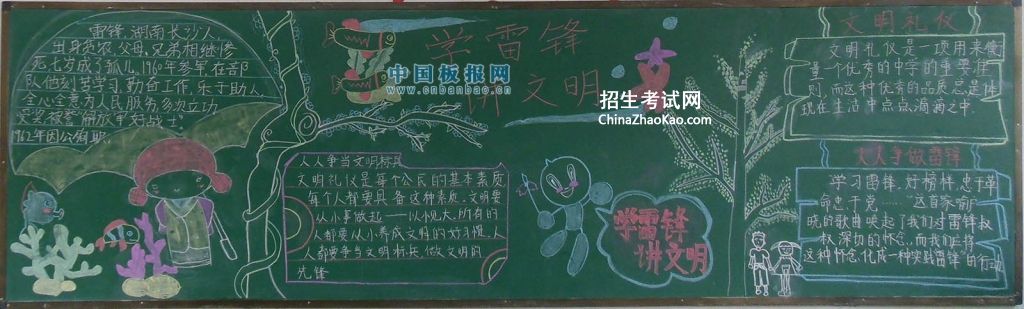 雷锋,湖南长沙人,
出身贫农,父母,兄弟相继惨
死七岁成了孤儿,1960年参军,在部
队他刻苦学习,勤奋工作,乐于助人,
全心全意为人民服务多次立功
受奖被誉"解放军好战士"
1962年因公殉职
学雷锋
讲文明
中国板报网
www.cnbanbao.cn
招生考试网
ChinaZhaoKao.com
人人争当文明标兵
文明礼仪是每个公民的基本素质
每个人都要具备这种素质。文明要
从小事做起——以悦大,所有的
人都要从小养成文明的好习惯,人
人都要争当文明标兵,做文明的
先锋
学雷锋
讲文明
文明礼仪
文明礼仪是一项用来衡
量一个优秀的中学的重要准
则,而这种优秀的品质总是体
现在生活中点点滴滴之中
人人争做雷锋
学习雷锋,好榜样,忠于革
命忠于党……"这首家喻户
晓的歌曲唤起了我们对雷锋叔
叔深切的怀念,而我们应将
这种怀念,化成一种实践雷锋的行动